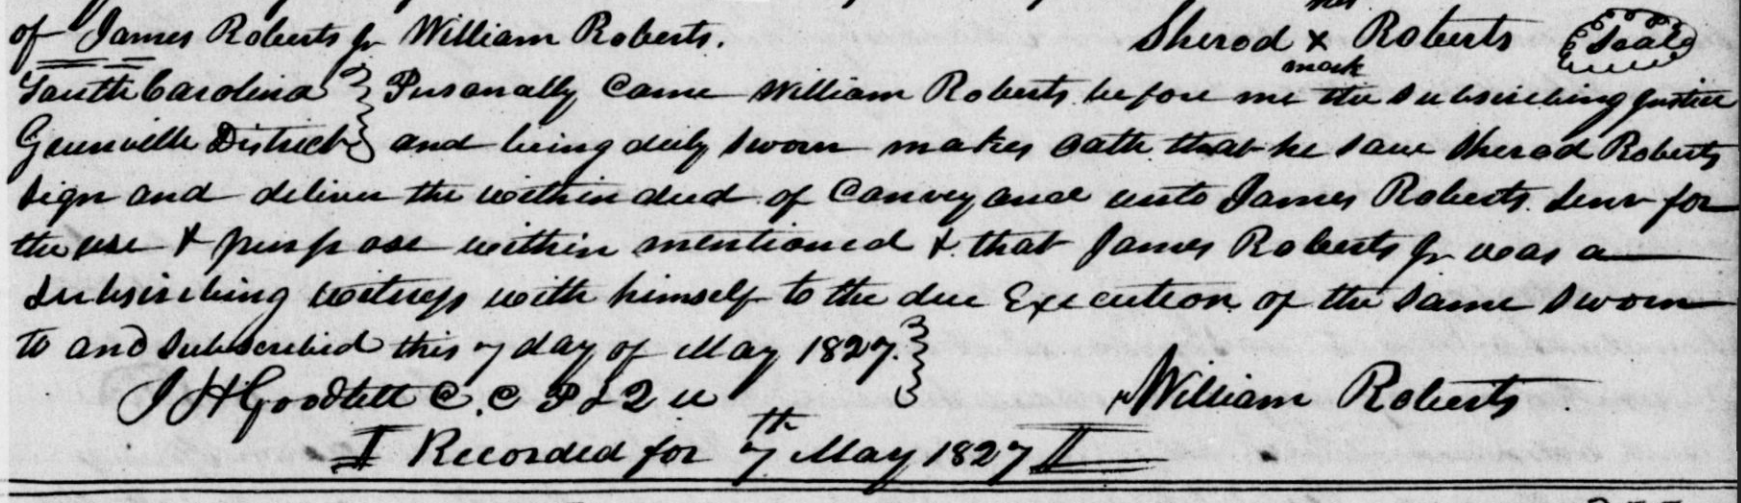 his
of James Roberts Jr William Roberts. Sherod x Roberts Seal
mark
South Carolina } Personally Came William Roberts before me the subscribing Justice
Greenville District } and being duly sworn makes oath that he saw Sherod Roberts
sign and deliver the within deed of Conveyance unto James Roberts Senr for
the use & purpose within mentioned & that James Roberts Jr was a
subscribing witness with himself to the due Execution of the same sworn
to and subscribed this 7 day of May 1827. }
J H Goodlett C. C P & Q U William Roberts
Recorded for 7th May 1827